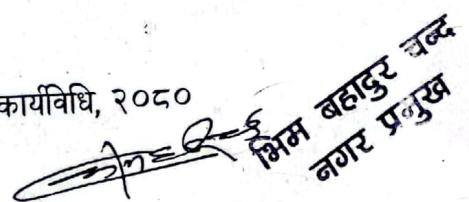 कार्यविधि, २०८०
भिम बहादुर चन्द
नगर प्रमुख